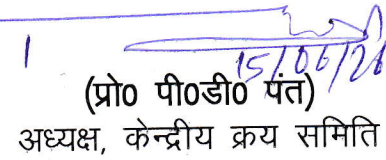 15/06/26
(प्रो0 पी0डी0 पंत)
अध्यक्ष, केन्द्रीय क्रय समिति